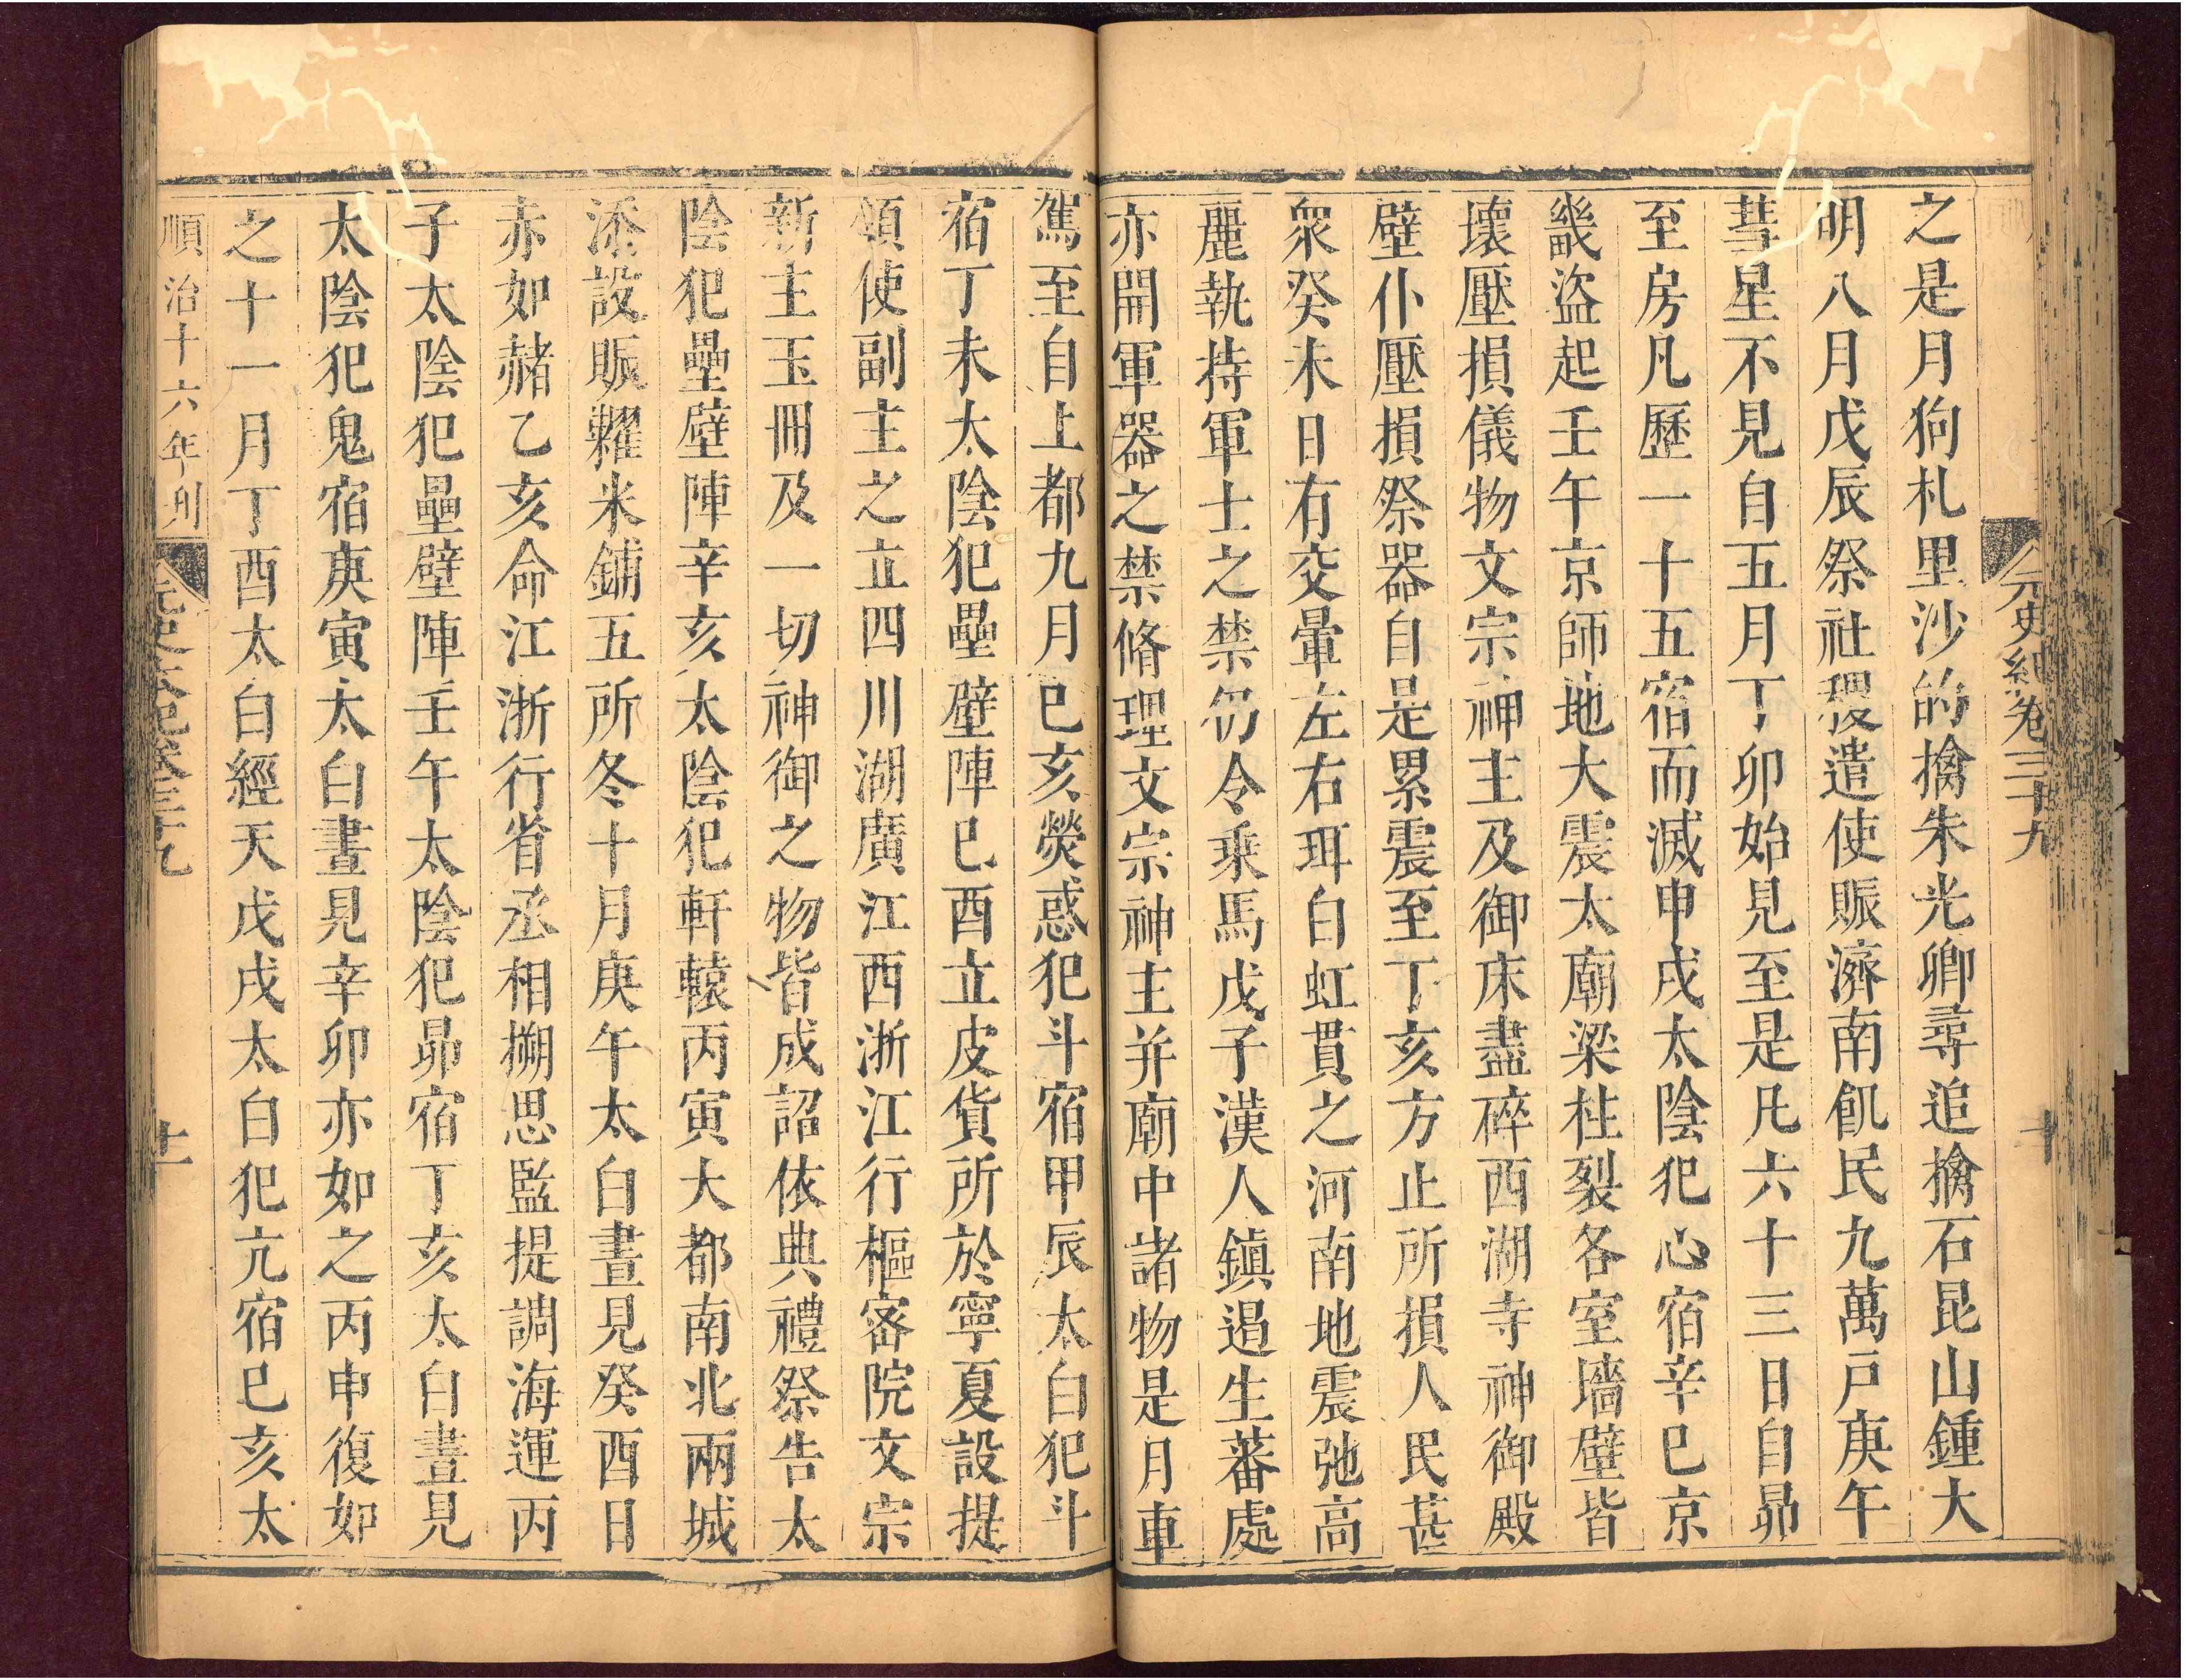 元史紀卷三十九
十
之是月狗札里沙的擒朱光卿尋追擒石昆山鍾大
明八月戊辰祭社稷遣使賑濟南飢民九萬戸庚午
彗星不見自五月丁卯始見至是凡六十三日自昴
至房凡歷一十五宿而滅甲戌太陰犯心宿辛巳京
畿盜起壬午京師地大震太廟梁柱裂各室墻壁皆
壞壓損儀物文宗神主及御床盡碎西湖寺神御殿
壁仆壓損祭器自是累震至丁亥方止所損人民甚
衆癸未日有交暈左右珥白虹貫之河南地震弛高
麗執持軍士之禁仍令乘馬戊子漢人鎮遏生蕃處
亦開軍器之禁脩理文宗神主并廟中諸物是月車
駕至自上都九月巳亥熒惑犯斗宿甲辰太白犯斗
宿丁未太陰犯壘壁陣巳酉立皮貨所於寧夏設提
領使副主之立四川湖廣江西浙江行樞密院文宗
新主玉冊及一切神御之物皆成詔依典禮祭告太
陰犯壘壁陣辛亥太陰犯軒轅丙寅大都南北兩城
添設賑糶米鋪五所冬十月庚午太白晝見癸酉日
赤如赭乙亥命江浙行省丞相搠思監提調海運丙
子太陰犯壘壁陣壬午太陰犯昴宿丁亥太白晝見
太陰犯鬼宿庚寅太白晝見辛卯亦如之丙申復如
之十一月丁酉太白經天戊戌太白犯亢宿巳亥太
順治十六年刊
元史本紀卷三十九
十一